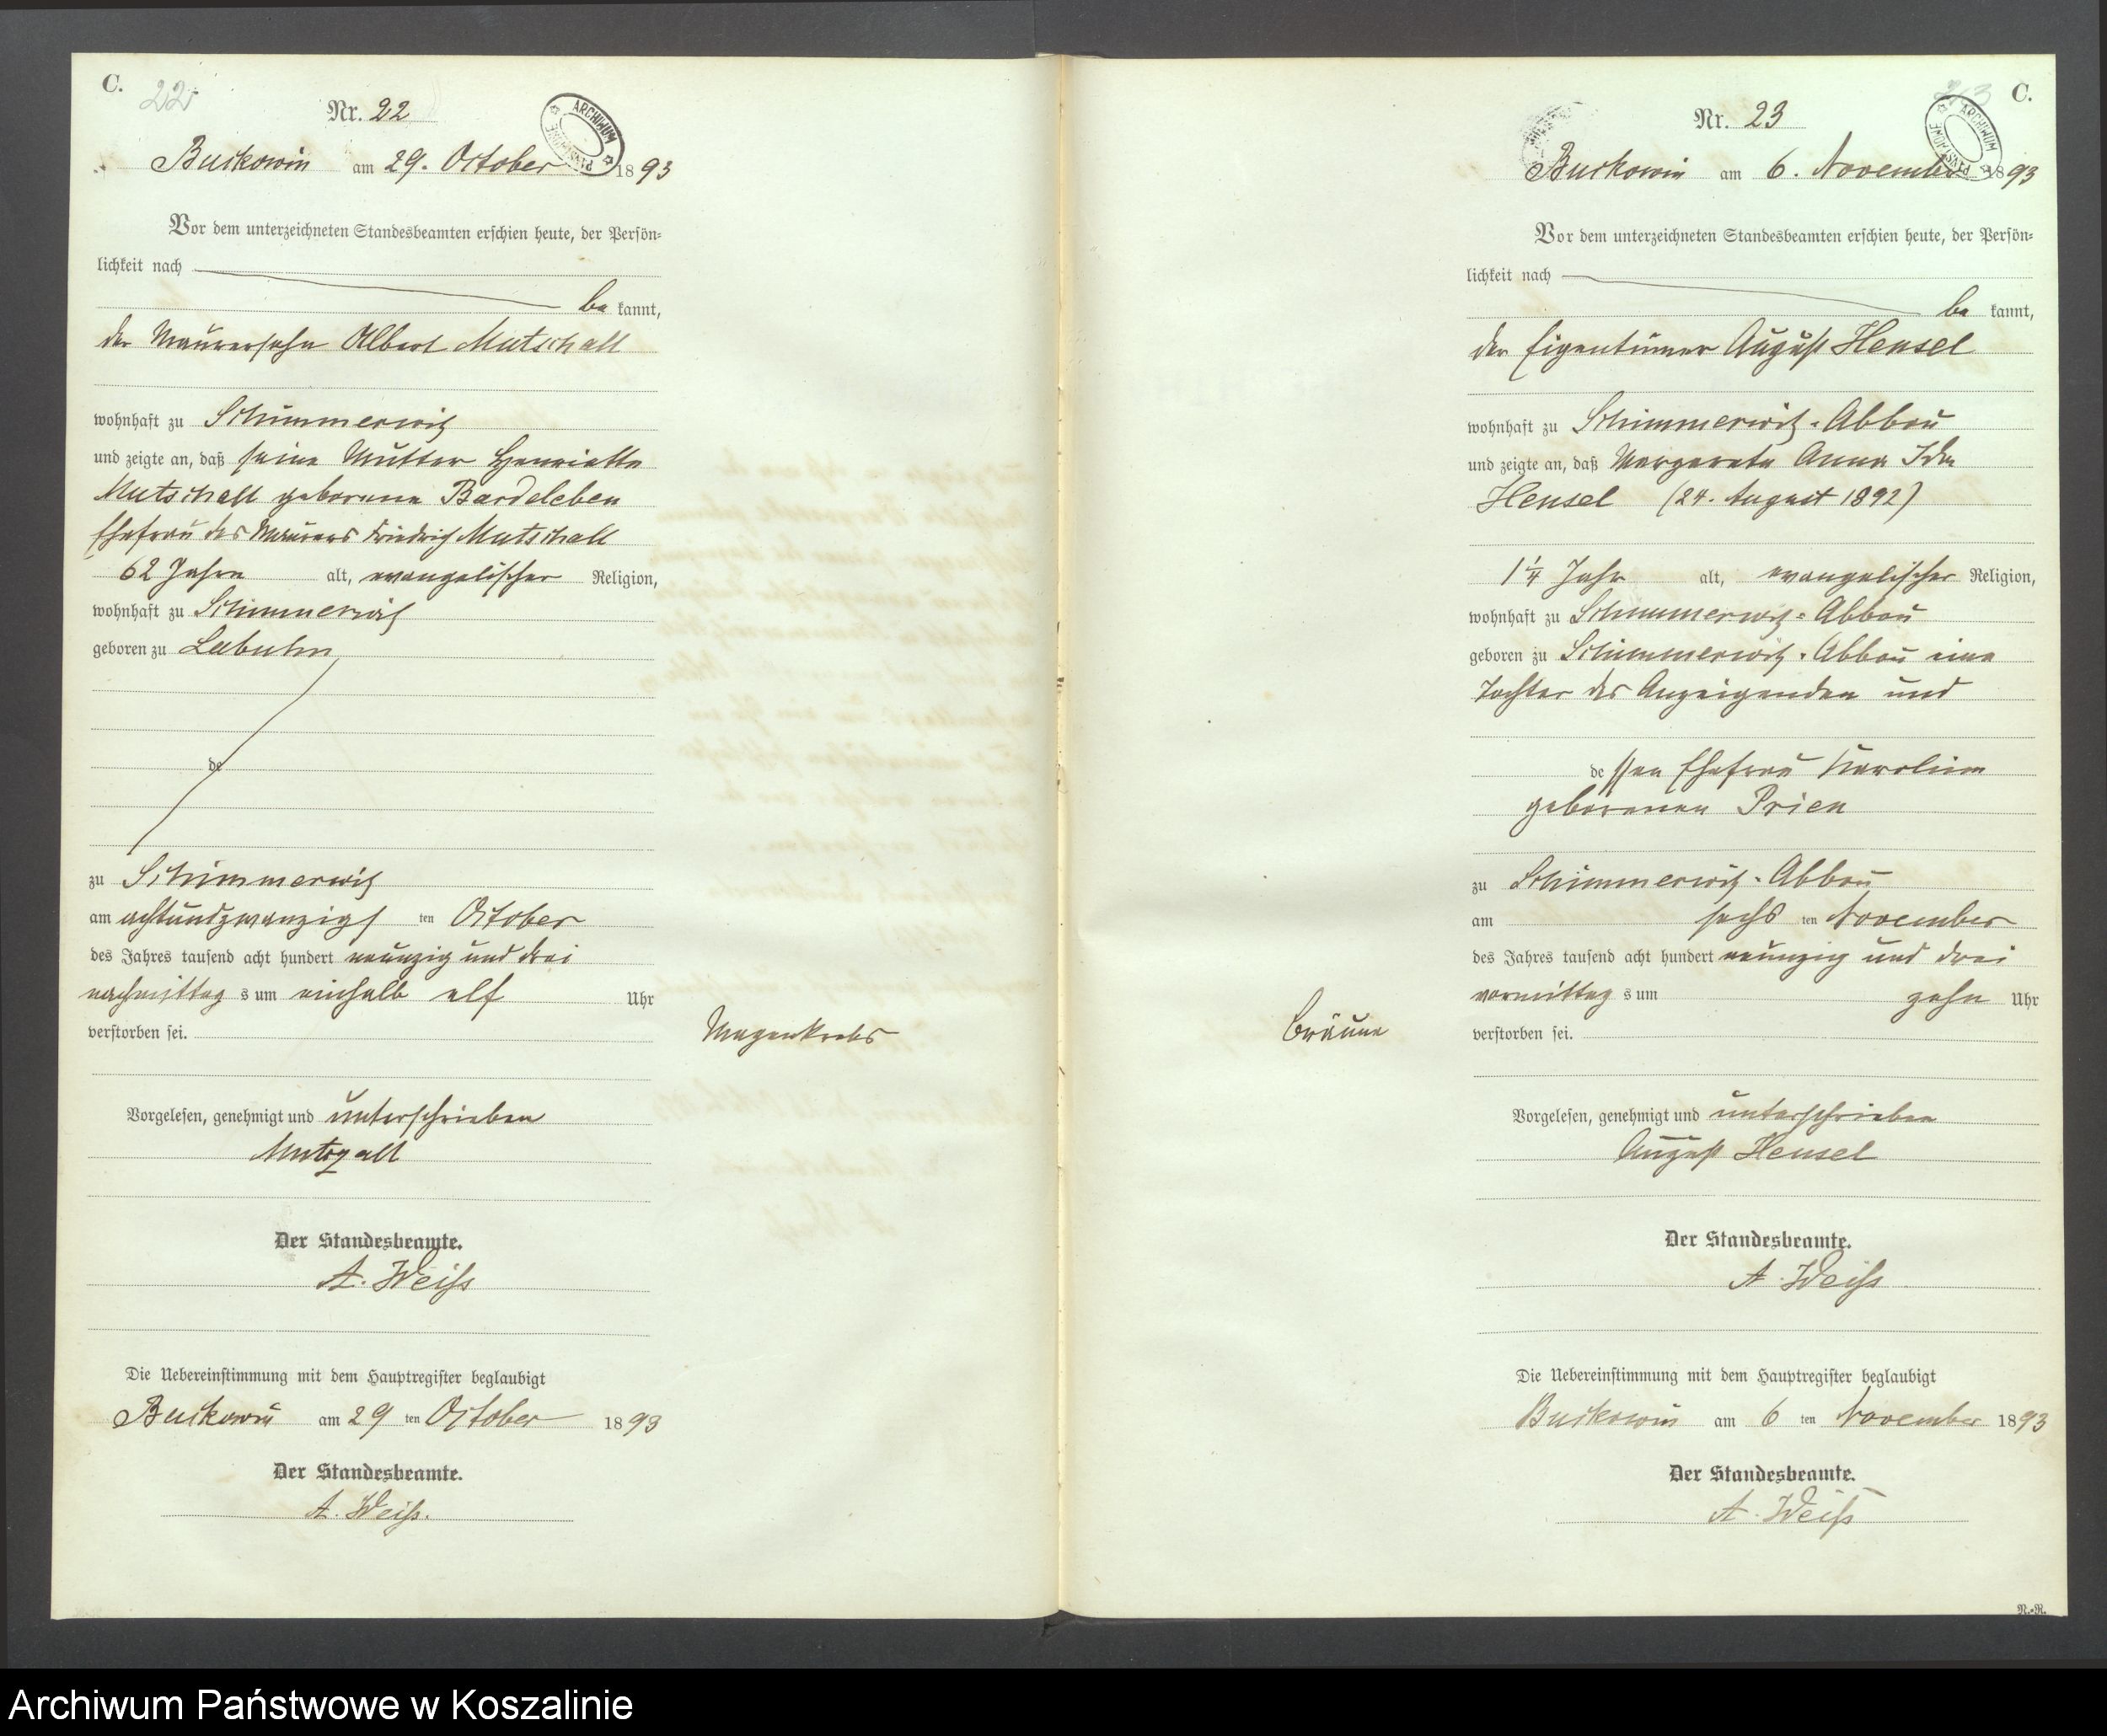 C.
22
Nr. 22
ARCHIWUM PAŃSTWOWE
Buckowin am 29. October 1893
Vor dem unterzeichneten Standesbeamten erschien heute, der Persön-
lichkeit nach
be kannt,
der Maurersohn Albert Mutschall
wohnhaft zu Schimmerwitz
und zeigte an, daß seine Mutter Henriette
Mutschall geborene Bardeleben
Ehefrau des Maurers Friedrich Mutschall
62 Jahre alt, evangelischer Religion,
wohnhaft zu Schimmerwitz
geboren zu Labuhn
de
zu Schimmerwitz
am achtundzwanzigs ten October
des Jahres tausend acht hundert neunzig und drei
nachmittag s um einhalb elf Uhr
verstorben sei.
Magenkrebs
Vorgelesen, genehmigt und unterschrieben
Mutzall
Der Standesbeamte.
A. Weiß
Die Uebereinstimmung mit dem Hauptregister beglaubigt
Buckowin am 29 ten October 1893
Der Standesbeamte.
A. Weiß.
C.
Nr. 23
ARCHIWUM PAŃSTWOWE
Buckowin am 6. November 1893
Vor dem unterzeichneten Standesbeamten erschien heute, der Persön-
lichkeit nach
be kannt,
der Eigentümer August Hensel
wohnhaft zu Schimmerwitz-Abbau
und zeigte an, daß Margareta Anna Ida
Hensel (24. August 1892)
1 1/4 Jahr alt, evangelischer Religion,
wohnhaft zu Schimmerwitz-Abbau
geboren zu Schimmerwitz-Abbau eine
Tochter des Anzeigenden und
de ssen Ehefrau Karoline
geborenen Prien
zu Schimmerwitz-Abbau
am sechs ten November
des Jahres tausend acht hundert neunzig und drei
vormittag s um zehn Uhr
verstorben sei.
Bräune
Vorgelesen, genehmigt und unterschrieben
August Hensel
Der Standesbeamte.
A. Weiß
Die Uebereinstimmung mit dem Hauptregister beglaubigt
Buckowin am 6 ten November 1893
Der Standesbeamte.
A. Weiß
N.-R.
Archiwum Państwowe w Koszalinie